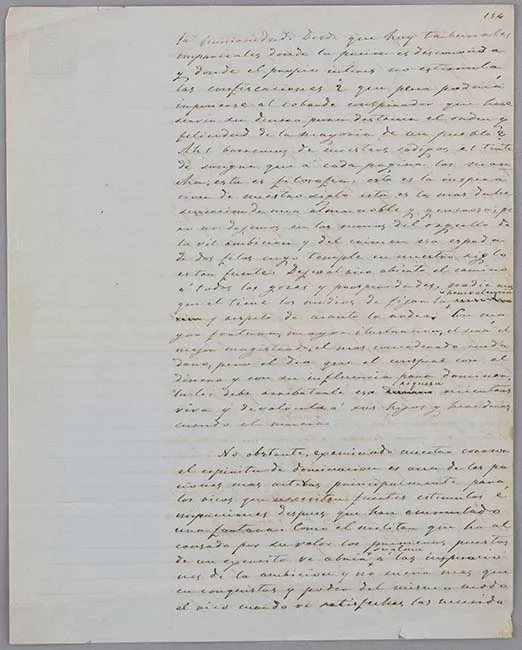 134
la humanidad. Desde que hay tribunales
imparciales donde la pasion es desconocida
y donde el propio interes no estimula
las confiscaciones ¿ que pena podria
imponerse al cobarde conspirador que hace
servir su dinero para destruir el orden y
felicidad de la mayoria de un pueblo?
Ah! borremos de nuestros codigos el tinte
de sangre que á cada pagina los man
cha; esta es filosofia, esta es la inspira
cion de nuestro siglo esta es la mas dulce
sensacion de una alma noble y generosa; pe
ro no dejemos en las manos del orgullo de
la vil ambicion y del crimen esa espada
de dos filos cuyo temple en nuestro siglo
es tan fuerte. Dejese al rico abierto el camino
á todos los gozes y prosperidades, nadie mas
que el tiene los medios de fijar la benevolencia
y respeto de cuanto lo rodea. Con ma
yor fortuna, mayor ilustracion, el será el
mejor magistrado, el mas considerado ciuda
dano, pero el dia que el conspire con el
dinero y con su influencia para dominar,
la lei debe arrebatarle esa riqueza mientras
viva y devolverla á sus hijos y herederos
cuando el muera.
No obstante, examinado nuestro corazon
el espiritu de dominacion es una de las pa
ciones mas activas principalmente para
los ricos que necesitan fuertes estimulos é
impresiones despues que han acumulado
una fortuna. Como el militar que ha al
canzado por su valor los primeros puestos
de un ejercito ve abrirse su alma á las inspiracio
nes de la ambicion y no sueña mas que
en conquistas y poder del mismo modo
el rico cuando ve satisfechas las necesida